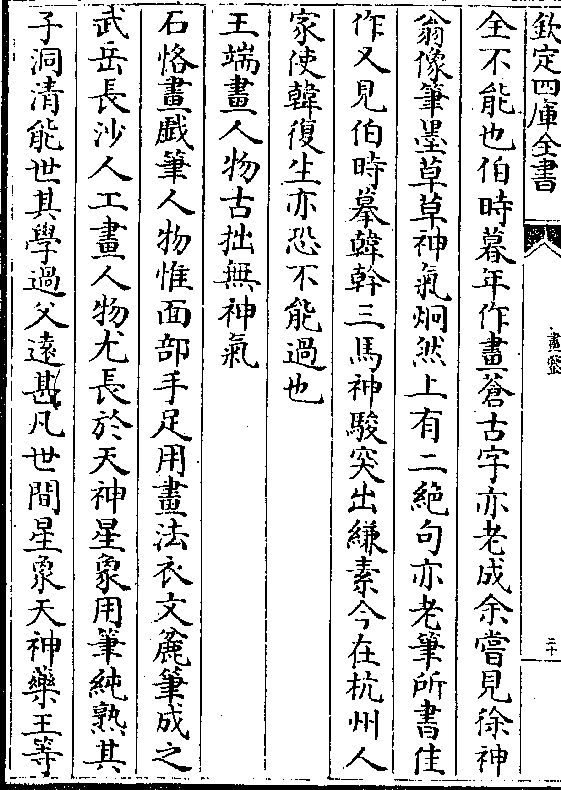 欽定四庫全書
畫鑒
三十
全不能也伯時暮年作畫蒼古字亦老成余嘗見徐神
翁像筆墨草草神氣炯然上有二絶句亦老筆所書佳
作又見伯時摹韓幹三馬神駿突出縑素今在杭州人
家使韓復生亦恐不能過也
王端畫人物古拙無神氣
石恪畫戲筆人物惟面部手足用畫法衣文麄筆成之
武岳長沙人工畫人物尤長於天神星象用筆純熟其
子洞清能世其學過父遠甚凡世間星象天神藥王等